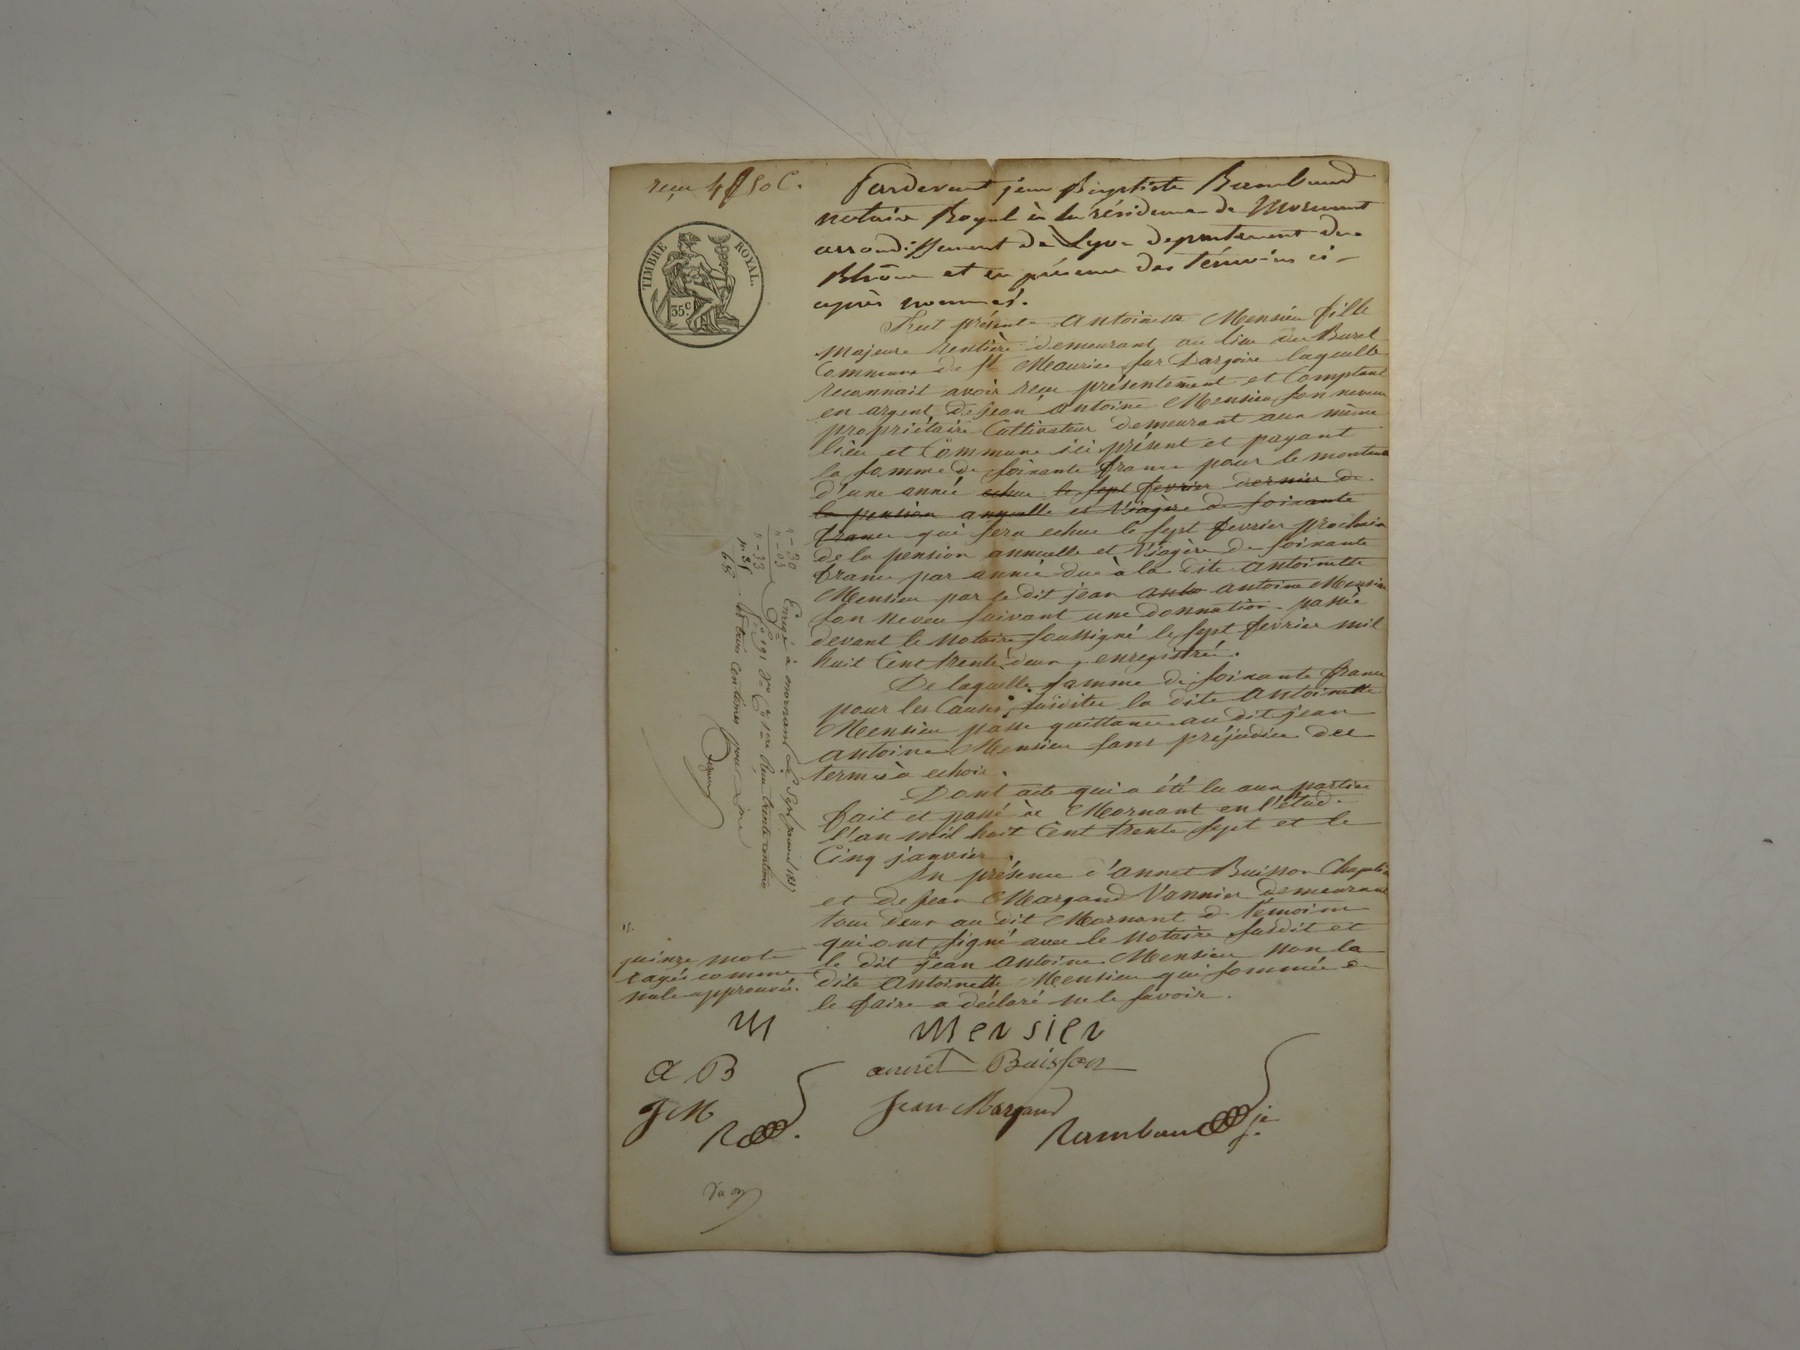 reçu 4f 50 C.
TIMBRE ROYAL.
35 c.
Pardevant jean Baptiste Rambaud
notaire Royal à la résidence de Mornant
arrondissement de Lyon departement du
Rhône et en présence des témoins ci-
après nommés.
Fut présente Antoinette Mensieu fille
majeure rentière demeurant au lieu du Burel
Commune de St Maurice sur Dargoire laquelle
reconnait avoir reçu présentement et Comptant
en argent de jean Antoine Mensieu son neveu
propriétaire Cultivateur demeurant aux même
lieu et Commune ici présent et payant
la somme de soixante francs pour le montant
d'une année echue le sept fevrier dernier de
la pension annuelle et Viagère de soixante
francs qui sera echue le sept fevrier prochain
de la pension annuelle et Viagère de soixante
francs par année due à la dite Antoinette
Mensieu par le dit jean anto antoine Mensieu
son neveu suivant une donnation passée
devant le Notaire soussigné le sept fevrier mil
huit Cent trente deux, enregistrée.
De laquelle somme de soixante francs
pour les Causes susdites la dite Antoinette
Mensieu passe quittance au dit jean
Antoine Mensieu sans préjudice des
termes à echoir.
Dont acte qui a été lu aux parties
fait et passé à Mornant en l'étude
l'an mil huit Cent trente sept et le
Cinq janvier.
En présence d'annet Buisson Chapelier
et de jean Margand Vannier demeurant
tous deux au dit Mornant témoins
qui ont signé avec le notaire susdit et
le dit jean Antoine Mensieu non la
dite Antoinette Mensieu qui sommée de
le faire a déclaré ne le savoir.
quinze mots
rayés comme
nuls approuvés.
Enregé à mornant le Sept janvier 1837
fo 191 Reçu trente centimes
et trois Centimes pour
1 - 30
" - 03
1 - 33
M
Mensien
A B
annet Buisson
J M
Jean Margand
R
Rambaud